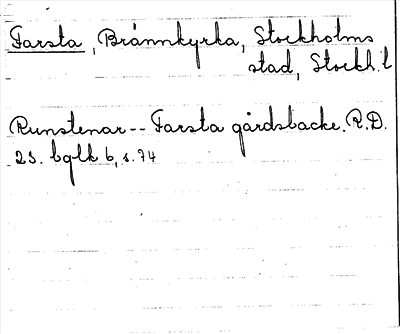 Farsta, Brännkyrka, Stockholms
stad, Stockh. l
Runstenar -- Farsta gårdsbacke. R.D.
23. bglk 6, s. 74